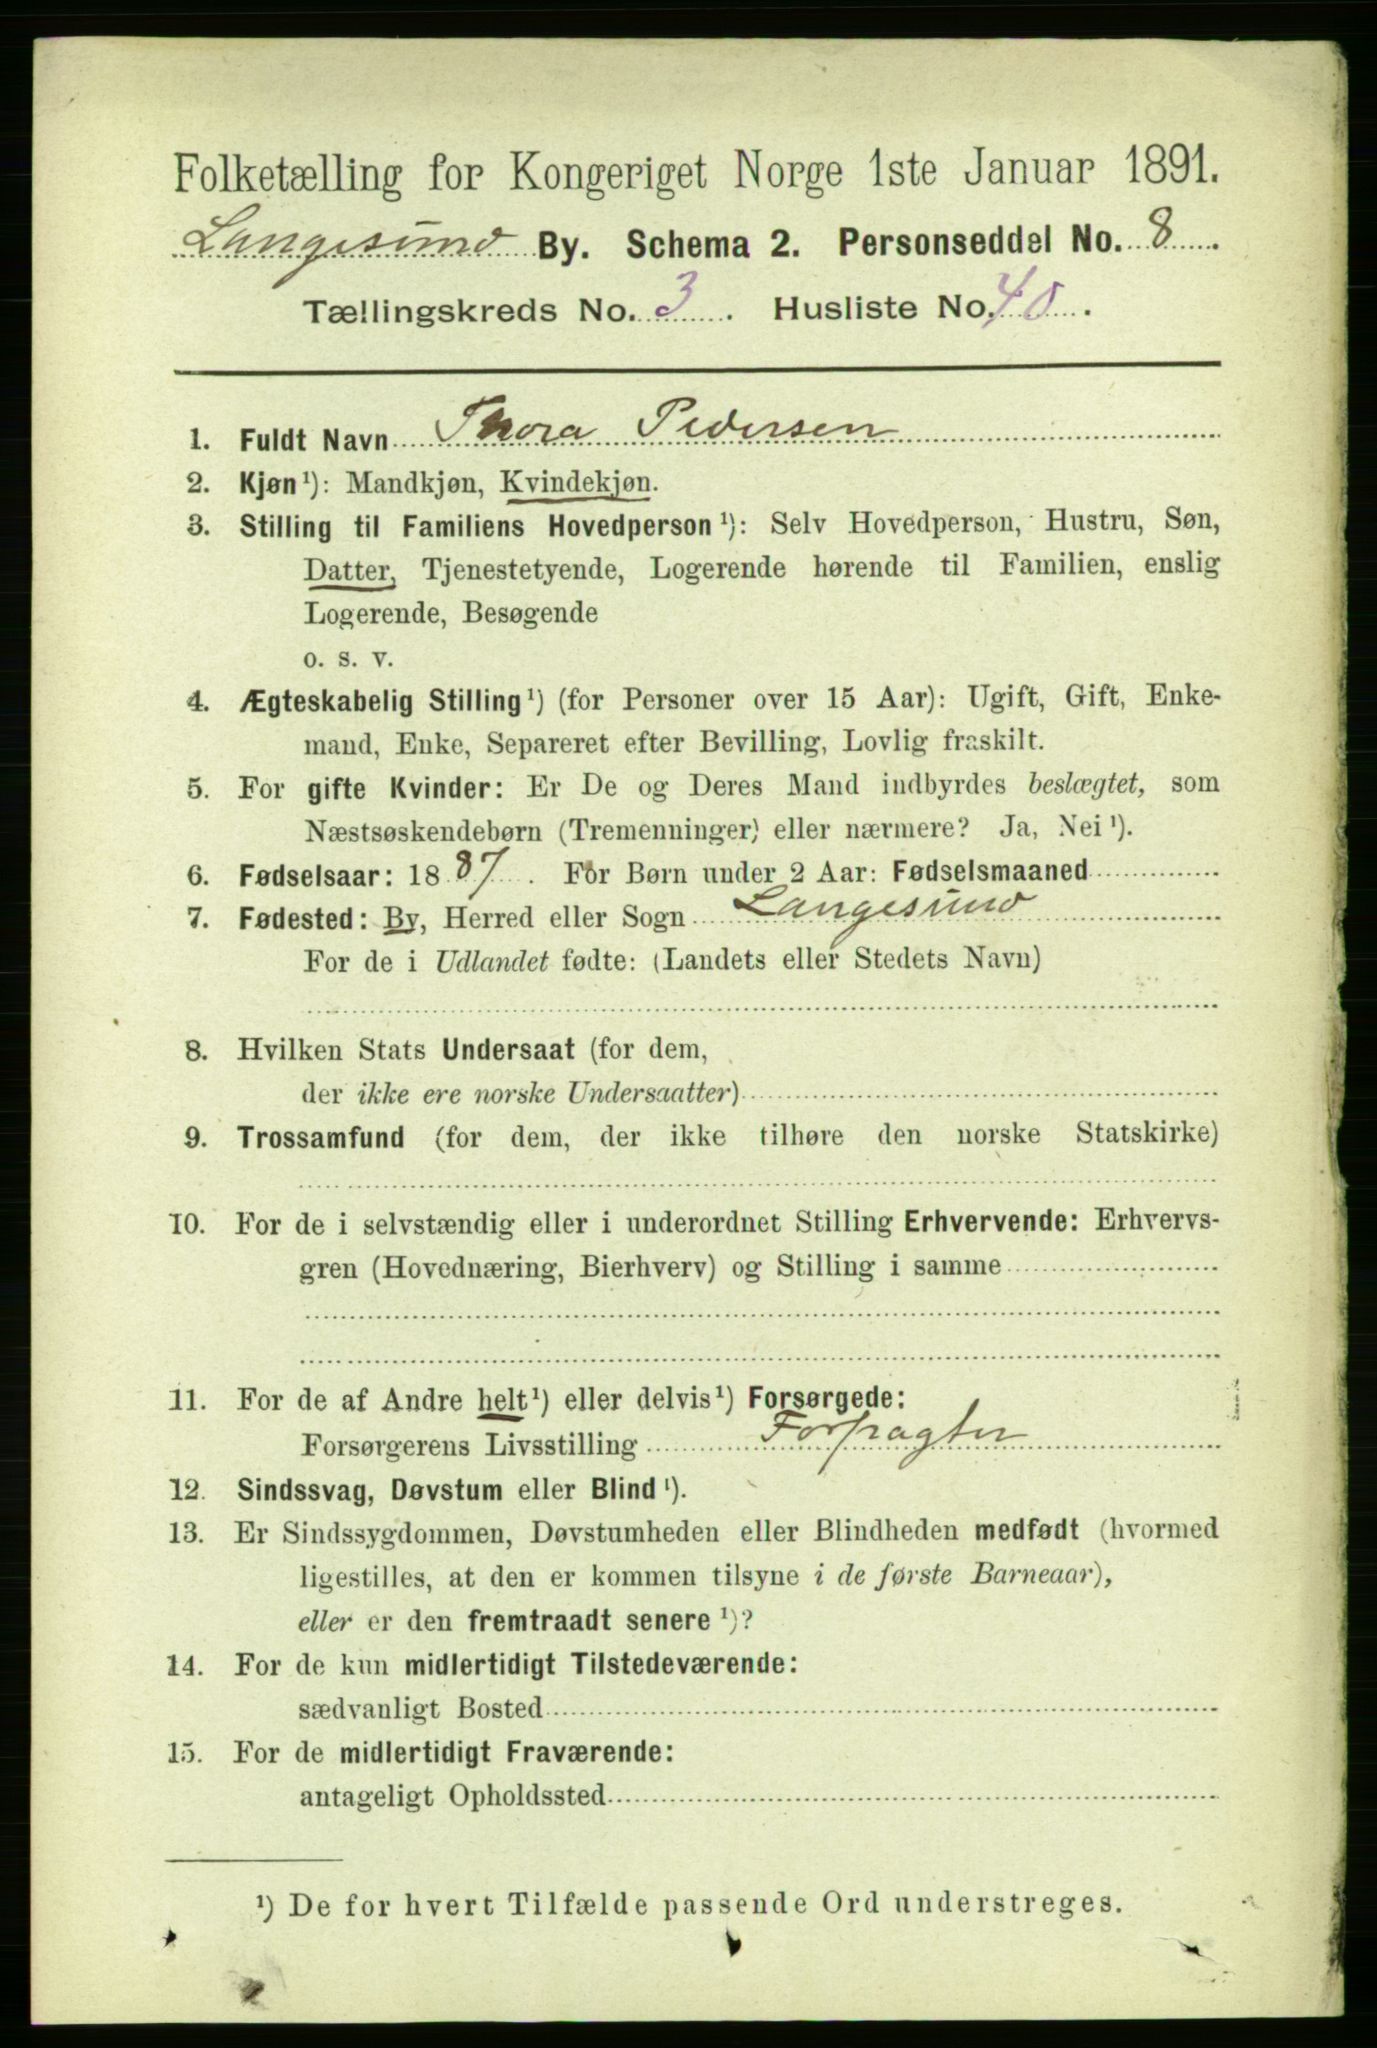 Folketælling for Kongeriget Norge 1ste Januar 1891.
Langesund By. Schema 2. Personseddel No. 8.
Tællingskreds No. 3. Husliste No. 40.
1. Fuldt Navn Thora Pedersen
2. Kjøn¹): Mandkjøn, Kvindekjøn.
3. Stilling til Familiens Hovedperson¹): Selv Hovedperson, Hustru, Søn,
Datter, Tjenestetyende, Logerende hørende til Familien, enslig
Logerende, Besøgende
o. s. v.
4. Ægteskabelig Stilling¹) (for Personer over 15 Aar): Ugift, Gift, Enke-
mand, Enke, Separeret efter Bevilling, Lovlig fraskilt.
5. For gifte Kvinder: Er De og Deres Mand indbyrdes beslægtet, som
Næstsøskendebørn (Tremenninger) eller nærmere? Ja, Nei¹).
6. Fødselsaar: 1887. For Børn under 2 Aar: Fødselsmaaned
7. Fødested: By, Herred eller Sogn Langesund
For de i Udlandet fødte: (Landets eller Stedets Navn)
8. Hvilken Stats Undersaat (for dem,
der ikke ere norske Undersaatter)
9. Trossamfund (for dem, der ikke tilhøre den norske Statskirke)
10. For de i selvstændig eller i underordnet Stilling Erhvervende: Erhvervs-
gren (Hovednæring, Bierhverv) og Stilling i samme
11. For de af Andre helt¹) eller delvis¹) Forsørgede:
Forsørgerens Livsstilling Forpagter
12. Sindssvag, Døvstum eller Blind¹).
13. Er Sindssygdommen, Døvstumheden eller Blindheden medfødt (hvormed
ligestilles, at den er kommen tilsyne i de første Barneaar),
eller er den fremtraadt senere¹)?
14. For de kun midlertidigt Tilstedeværende:
sædvanligt Bosted
15. For de midlertidigt Fraværende:
antageligt Opholdssted
¹) De for hvert Tilfælde passende Ord understreges.